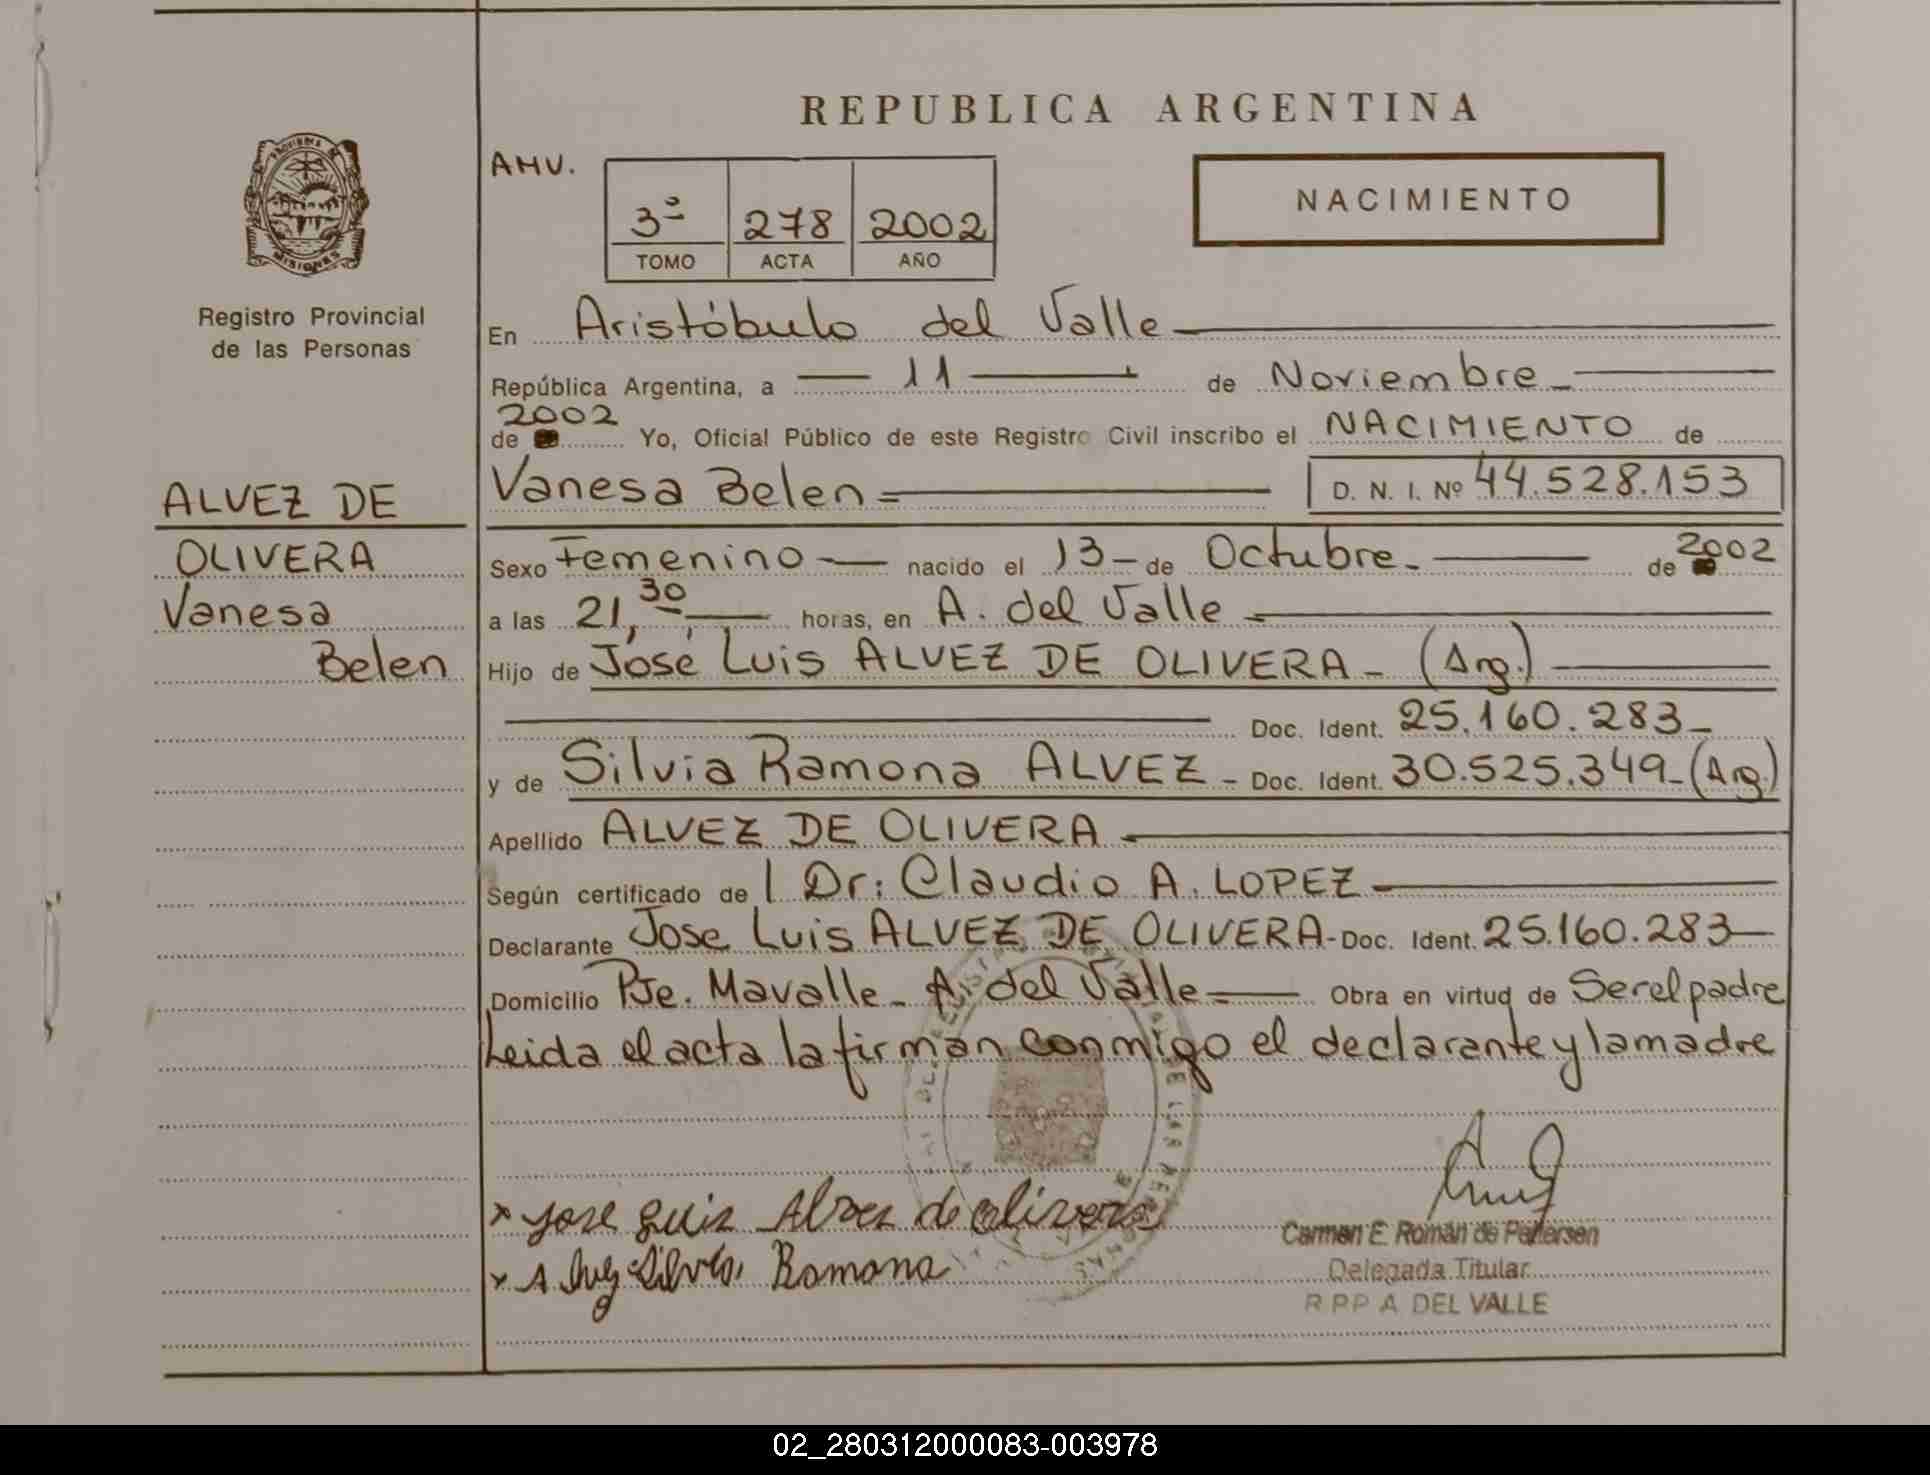 REPUBLICA ARGENTINA
AMV.
3º 278 2002
TOMO ACTA AÑO
NACIMIENTO
PROVINCIA DE
MISIONES
Registro Provincial
de las Personas
En Aristóbulo del Valle
República Argentina, a 11 de Noviembre
2002
de Yo, Oficial Público de este Registro Civil inscribo el NACIMIENTO de
Vanesa Belen = D. N. I. Nº 44.528.153
ALVEZ DE
OLIVERA
Vanesa
Belen
Sexo Femenino — nacido el 13 - de Octubre. de 2002
a las 21,30 horas, en A. del Valle
Hijo de José Luis ALVEZ DE OLIVERA - (Arg.)
Doc. Ident. 25.160.283
y de Silvia Ramona ALVEZ - Doc. Ident. 30.525.349 - (Arg.)
Apellido ALVEZ DE OLIVERA
Según certificado de Dr: Claudio A. LOPEZ
Declarante Jose Luis ALVEZ DE OLIVERA - Doc. Ident. 25.160.283
Domicilio Pje. Mavalle - A. del Valle Obra en virtud de Ser el padre
Leida el acta la firman conmigo el declarante y la madre
x Jose Luis Alvez de Olivera
x Alvez Silvia Ramona
Carmen E. Román de Petersen
Delegada Titular
R P P A DEL VALLE
02_280312000083-003978